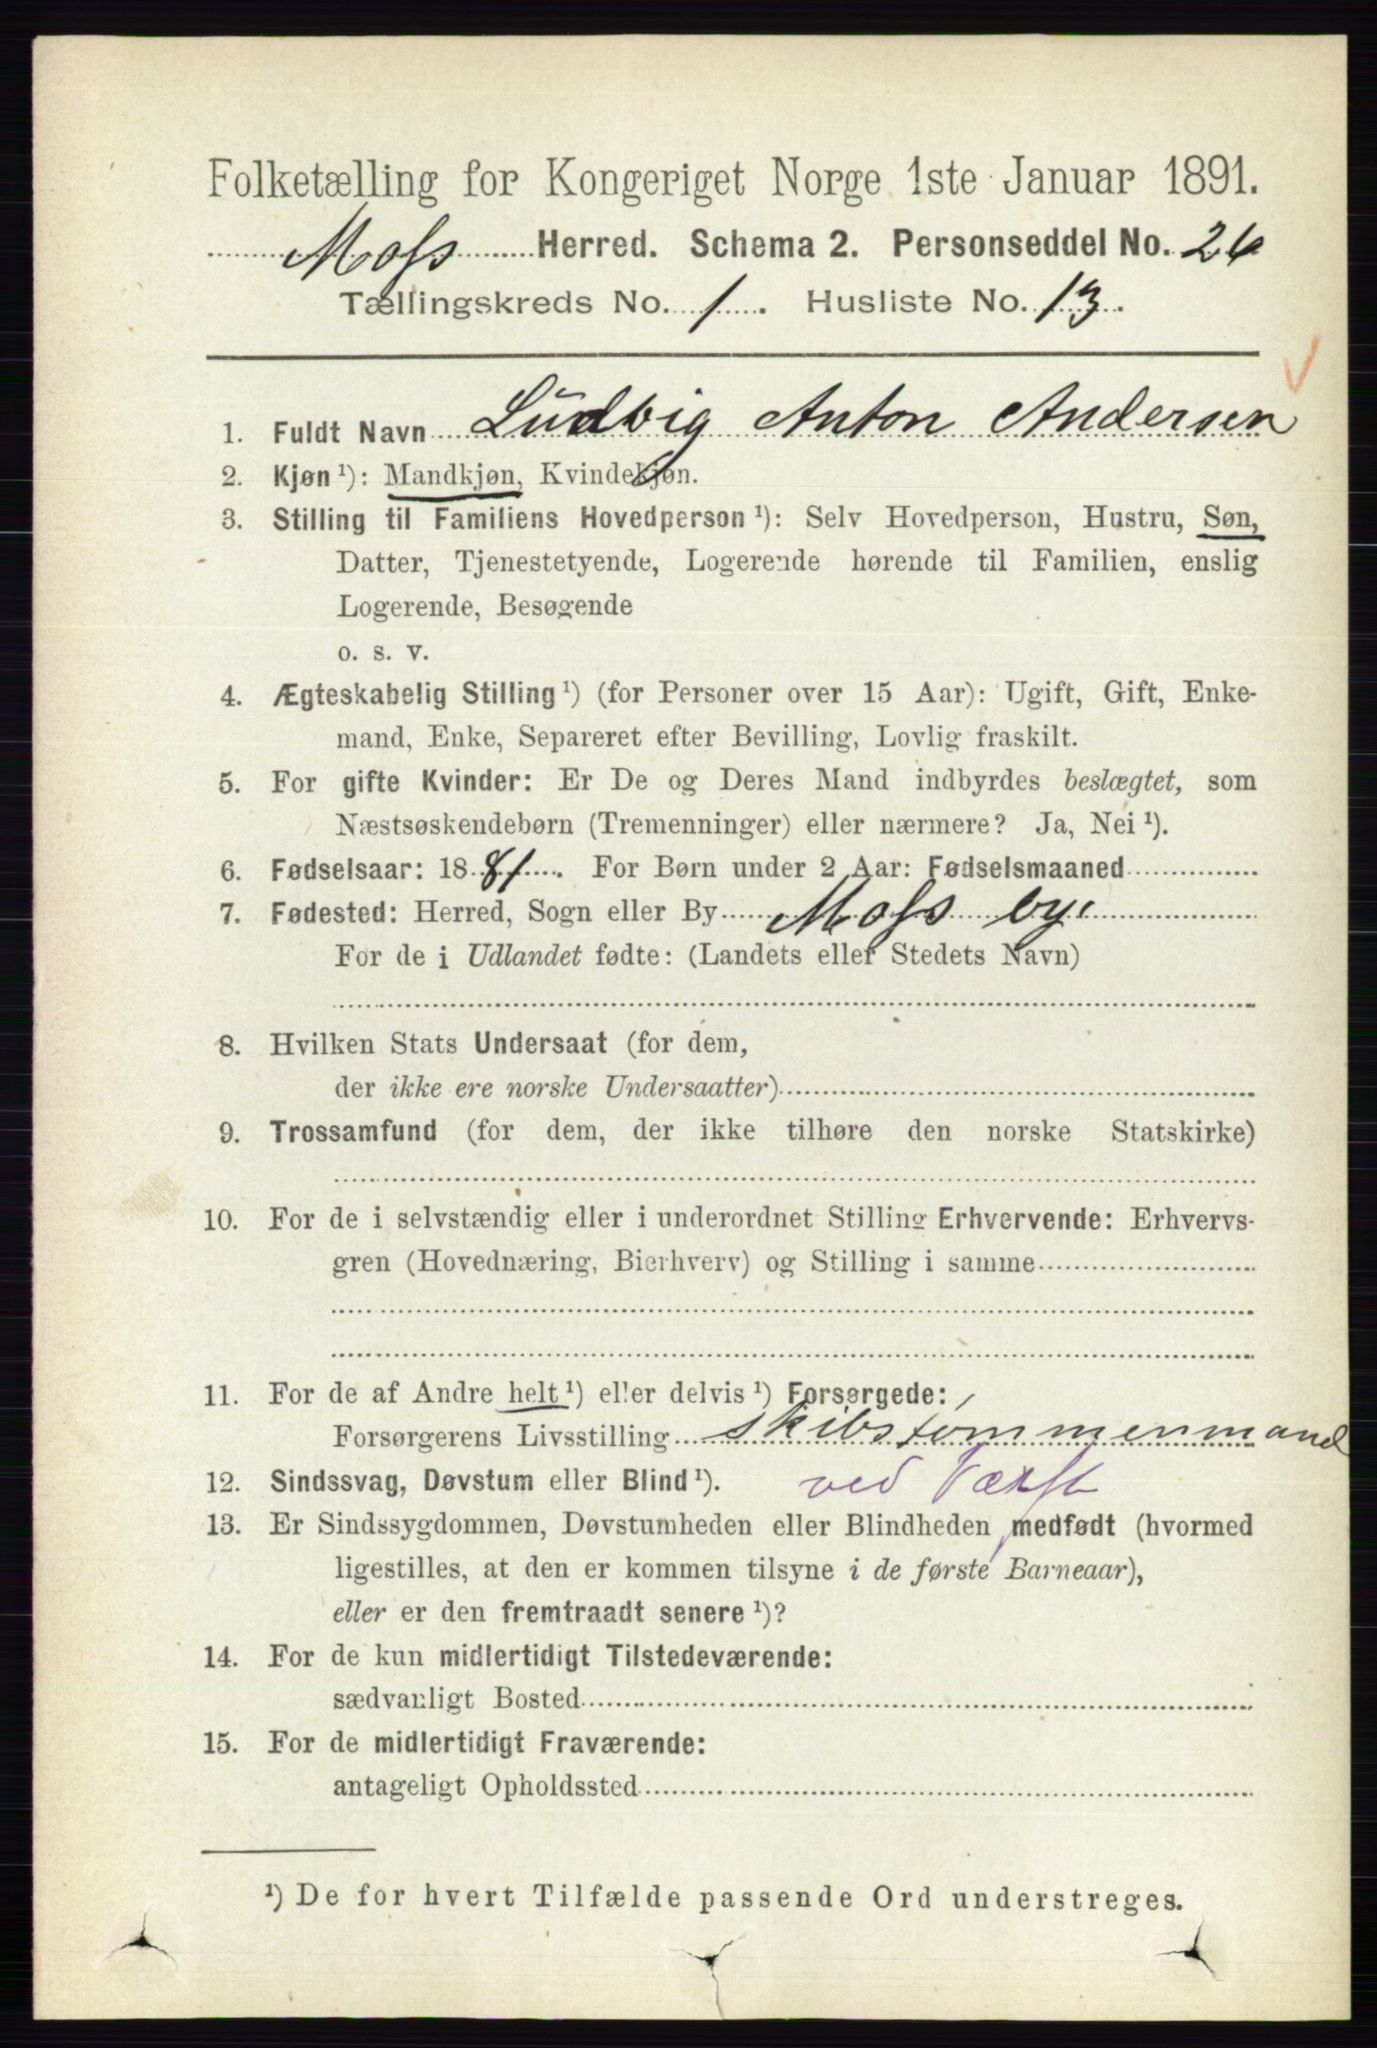 Folketælling for Kongeriget Norge 1ste Januar 1891.
Moss Herred. Schema 2. Personseddel No. 26
Tællingskreds No. 1. Husliste No. 13.
1. Fuldt Navn Ludvig Anton Andersen
2. Kjøn ¹): Mandkjøn, Kvindekjøn.
3. Stilling til Familiens Hovedperson ¹): Selv Hovedperson, Hustru, Søn,
Datter, Tjenestetyende, Logerende hørende til Familien, enslig
Logerende, Besøgende
o. s. v.
4. Ægteskabelig Stilling ¹) (for Personer over 15 Aar): Ugift, Gift, Enke-
mand, Enke, Separeret efter Bevilling, Lovlig fraskilt.
5. For gifte Kvinder: Er De og Deres Mand indbyrdes beslægtet, som
Næstsøskendebørn (Tremenninger) eller nærmere? Ja, Nei ¹).
6. Fødselsaar: 1881. For Børn under 2 Aar: Fødselsmaaned
7. Fødested: Herred, Sogn eller By Moss by.
For de i Udlandet fødte: (Landets eller Stedets Navn)
8. Hvilken Stats Undersaat (for dem,
der ikke ere norske Undersaatter)
9. Trossamfund (for dem, der ikke tilhøre den norske Statskirke)
10. For de i selvstændig eller i underordnet Stilling Erhvervende: Erhvervs-
gren (Hovednæring, Bierhverv) og Stilling i samme
11. For de af Andre helt ¹) eller delvis ¹) Forsørgede:
Forsørgerens Livsstilling skibstømmermand
12. Sindssvag, Døvstum eller Blind ¹). ved Værft
13. Er Sindssygdommen, Døvstumheden eller Blindheden medfødt (hvormed
ligestilles, at den er kommen tilsyne i de første Barneaar),
eller er den fremtraadt senere ¹)?
14. For de kun midlertidigt Tilstedeværende:
sædvanligt Bosted
15. For de midlertidigt Fraværende:
antageligt Opholdssted
¹) De for hvert Tilfælde passende Ord understreges.